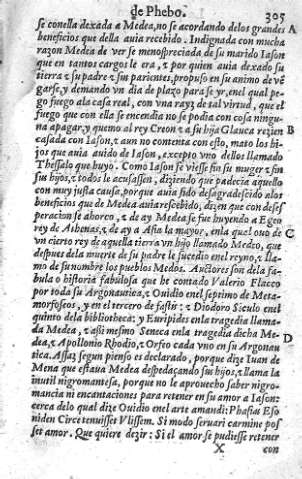 de Phebo. 305
se con ella dexada a Medea, no se acordando de los grandes A
beneficios que della auia recebido. Indignada con mucha
razon Medea de ver se menospreciada de su marido Iason
que en tantos cargos le era, y por quien auia dexado su
tierra y su padre y sus parientes, propuso en su animo de vē
garse, y demando vn dia de plazo para se yr, en el qual pe-
go fuego ala casa real, con vna rayz de tal virtud, que el
fuego que con ella se encendia no se podia con cosa ningu-
na apagar, y quemo al rey Creon y a su hija Glauca rezien B
casada con Iason, y aun no contenta con esto, mato los hi-
jos que auia auido de Iason, excepto vno dellos llamado
Thessalo que huyo. Como Iason se viesse sin su muger y sin
sus hijos, y todos le acusassen, diziendo que padecia aquello
con muy justa causa, porque auia sido desagradescido alos
beneficios que de Medea auia rescebido, dizen que con deses
peracion se ahorco, y de ay Medea se fue huyendo a Egeo
rey de Athenas, y de ay a Asia la mayor, en la qual ouo de C
vn cierto rey de aquella tierra vn hijo llamado Medeo, que
despues dela muerte de su padre le sucedio enel reyno, y lla-
mo de su nombre los pueblos Medos. Auctores son dela fa-
bula o historia fabulosa que he contado Valerio Flacco
por toda su Argonautica, y Ouidio enel septimo de Meta-
morfoseos, y en el tercero de fastis: y Diodoro Siculo enel
quinto dela bibliotheca: y Euripides en la tragedia llama-
da Medea, y assi mesmo Seneca enla tragedia dicha Me- D
dea, y Apollonio Rhodio, y Orfeo cada vno en su Argonau
tica. Assaz segun pienso es declarado, porque dize Iuan de
Mena que estaua Medea despedaçando sus hijos, y llama la
inutil nigromantesa, porque no le aprouecho saber nigro-
mancia ni encantaciones para retener en su amor a Iason:
cerca delo qual dize Ouidio enel arte amandi: Phasias Eso
niden Circe tenuisset Vlissem. Si modo seruari carmine pos
set amor. Que quiere dezir: Si el amor se pudiesse retener
X con